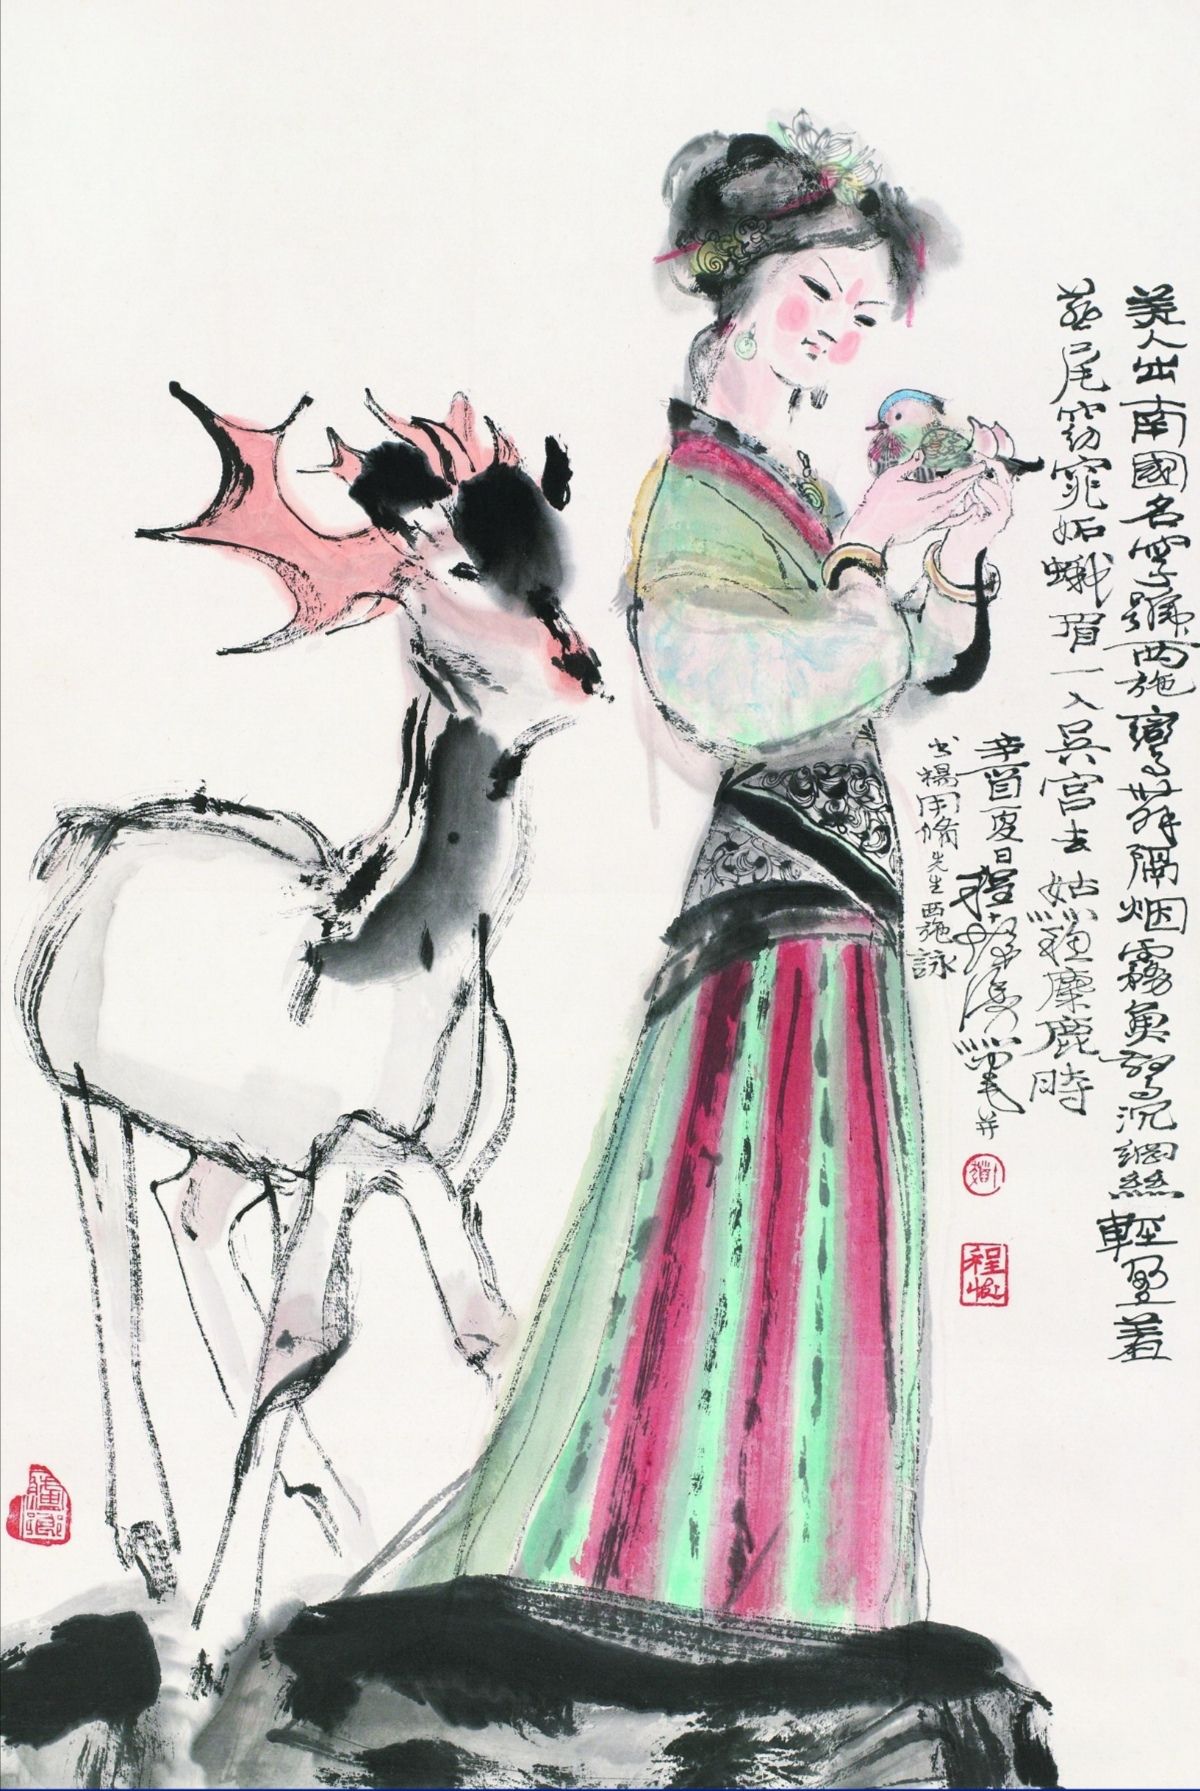 美人出南國名字號西施鸞舞隔烟霧魚驚沉網絲輕盈羞
燕尾窈窕妬蛾眉一入吳宮去姑蘇麋鹿時
辛酉夏日程十髮漫筆并
书楊用脩先生西施詠